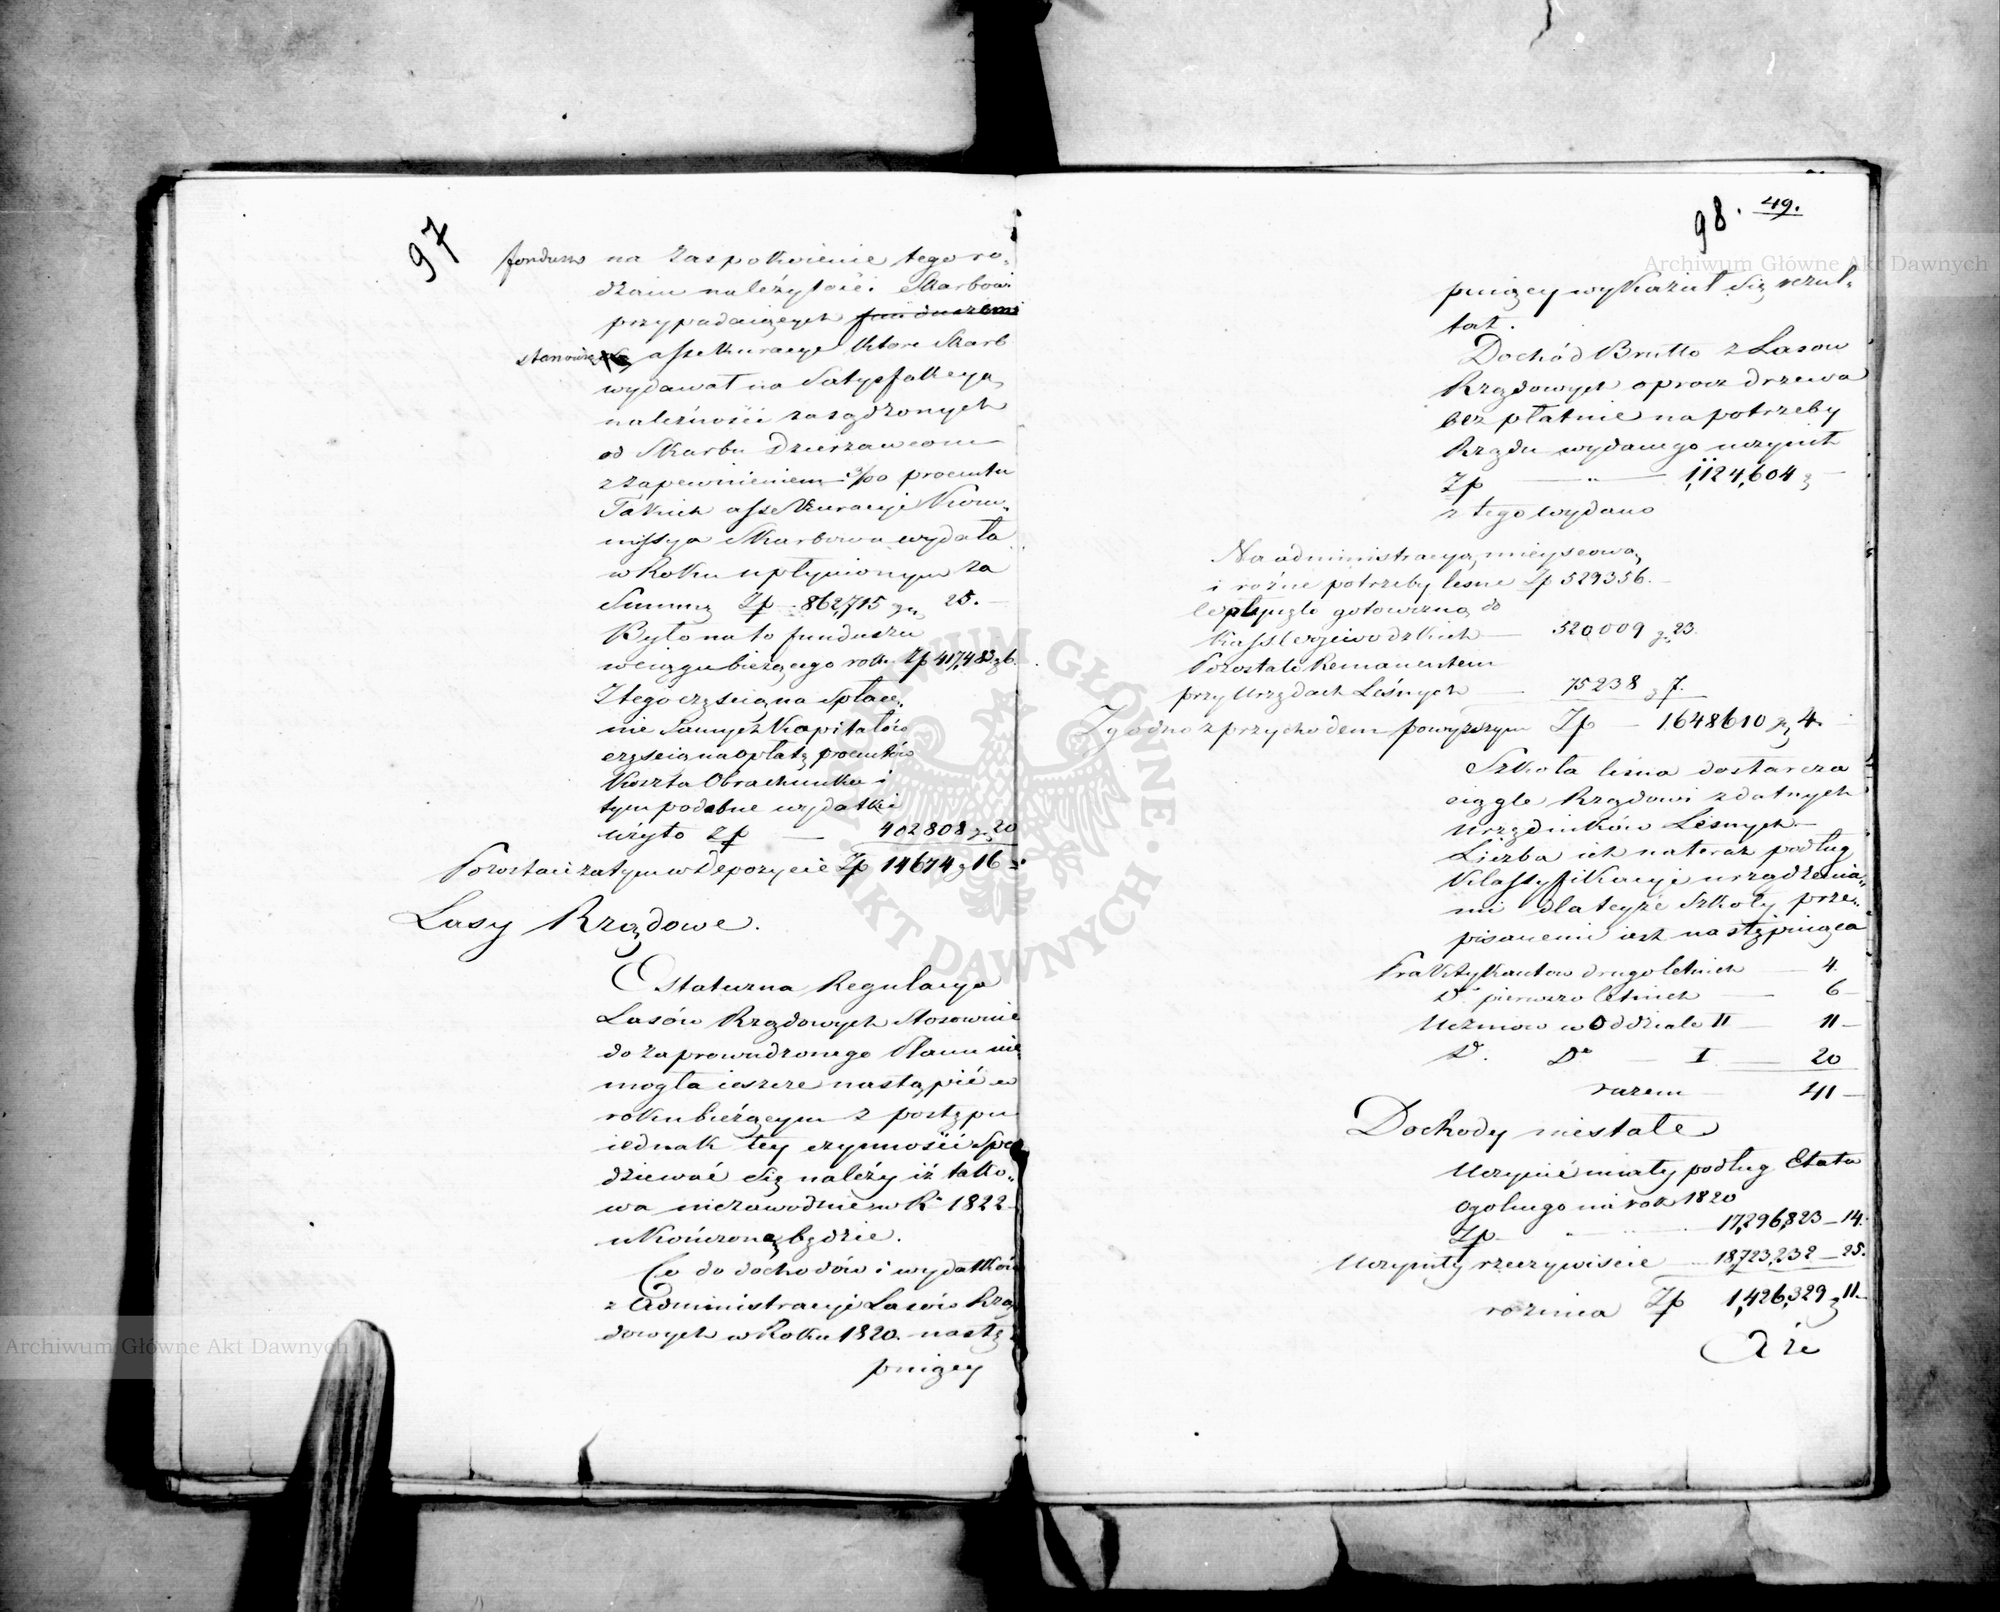 97
fundusz na zaspokoienie tego ro-
dzaiu należytości Skarbowi
przypadaiących funduszem
stanowią assekuracye które Skarb
wydawał na Satysfakcyą
należności zasądzonych
od Skarbu Dzierżawcom
z zapewnieniem procentu
Takich assekuracyi Kom-
missya Skarbowa wydała
w Roku upłynionym za
Summę Zp 862,715 gr 25.
Było na to funduszu
w ciągu bieżącego roku Zp 417,483 g 6.
Z tego częścią na Spłace-
nie Samych Kapitałów
częścią na opłatę procentów
Koszta Obrachunku i
tym podobne wydatki
użyto Zp — 402808 g 20
Pozostaie zatym w Depozycie Zp 14674 g 16
Lasy Rządowe.
Ostateczna Regulacya
Lasów Rządowych Stosownie
do zaprowadzonego Planu nie
mogła ieszcze nastąpić w
roku bieżącym z postępu
iednak tey czynności Spo
dziewać Się należy iż tako-
wa niezawodnie w R. 1822
ukończoną będzie.
Co do dochodów i wydatków
z Administracyi Lasów Rzą
dowych w Roku 1820. nastę
puiący
98. 49.
puiący wykazał Się rezul-
tat.
Dochód Brutto z Lasow
Rządowych oprocz drzewa
bez płatnie na potrzeby
Rządu wydanego uczynił
Zp — " — 1,124,604 g —
z tego wydano
Na administracyą mieyscową
i rożne potrzeby lesne Zp 529356.—
wpłynęło gotowizną do
Kass Woiewodzkich — 520,009 g. 23.
Pozostało Remanentem
przy Urzędach Leśnych — 75238 g 7.
Zgodno z przychodem powyższym Zp — 1648610 g 4.
Szkoła lesna dostarcza
ciągle Rządowi zdatnych
Urzędników Lesnych.—
Liczba ich na teraz podług
Klassyfikacyi urządzenia-
mi dla teyże Szkoły prze-
pisanemi iest następuiąca
Praktykantow drugoletnich — 4.
D° pierwszoletnich — 6 —
Uczniow w Oddziale II — 11 —
D°. D° — I — 20
razem — 41 —
Dochody niestałe
Uczynić miały podług Etatu
ogolnego na rok 1820
Zp — 17,296,823 — 14.
Uczyniły rzeczywiscie — 18,723,232 — 25.
rożnica Zp 1,426,329 g 11.
A że
Archiwum Główne Akt Dawnych
Archiwum Główne Akt Dawnych